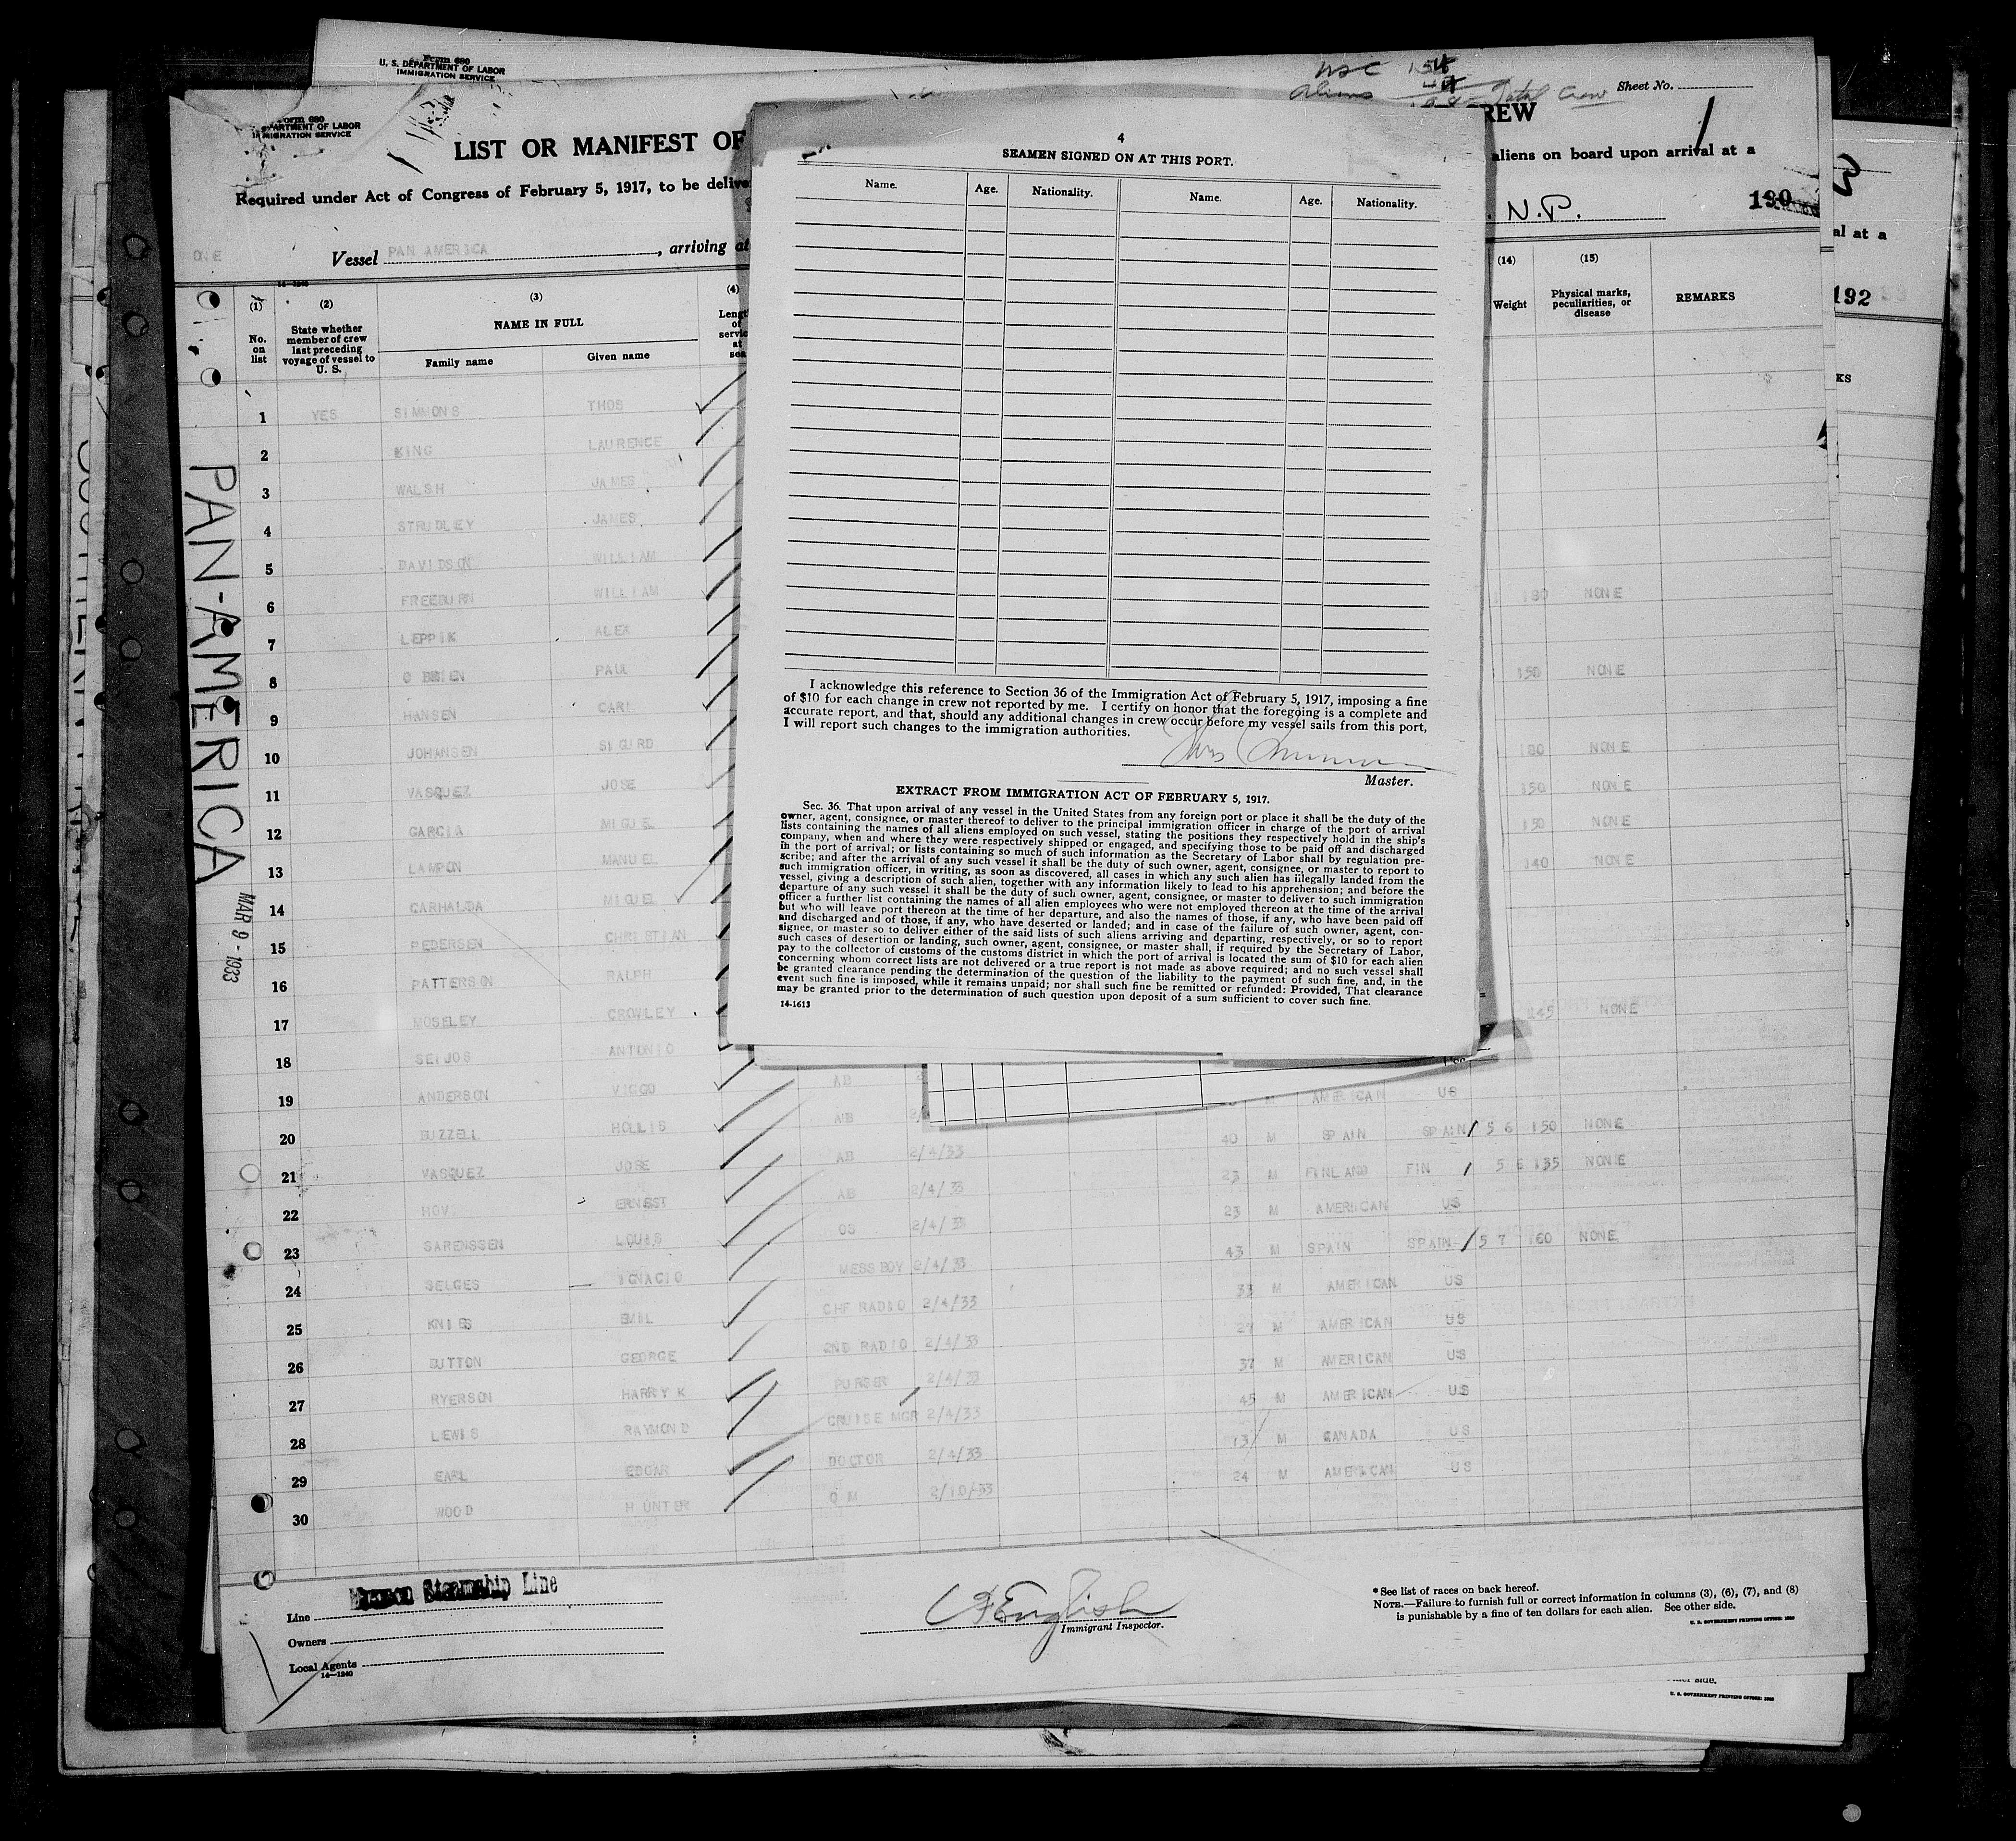 Form 680
U. S. DEPARTMENT OF LABOR
IMMIGRATION SERVICE
Form 680
DEPARTMENT OF LABOR
IMMIGRATION SERVICE
Aliens
Total Crew
Sheet No.
1
LIST OR MANIFEST OF
REW
Required under Act of Congress of February 5, 1917, to be delive
aliens on board upon arrival at a
ONE
Vessel PAN AMERICA, arriving at
al at a
192
(1) No. on list
(2) State whether member of crew last preceding voyage of vessel to U. S.
(3) NAME IN FULL
Family name Given name
(4)
(14) Weight
(15) Physical marks, peculiarities, or disease
REMARKS
KS
1 YES SIMMONS THOS
2 KING LAURENCE
3 WALSH JAMES
4 STRUDLEY JAMES
5 DAVIDSON WILLIAM
6 FREEBURN WILLIAM 180 NONE
7 LEPPIK ALEX
8 O BRIEN PAUL 150 NONE
9 HANSEN CARL
10 JOHANSEN SIGURD 180 NONE
11 VASQUEZ JOSE 150 NONE
12 GARCIA MIGUEL 150 NONE
13 LAMPON MANUEL 140 NONE
14 MIGUEL
15 PEDERSEN CHRISTIAN
16 PATTERSON RALPH
17 MOSELEY CROWLEY 145 NONE
18 SEIJOS ANTONIO
19 ANDERSON VIGGO AB M AMERICAN US
20 BUZZELL HOLLIS AB 40 M SPAIN SPAIN 5 6 150 NONE
21 VASQUEZ JOSE AB 2/4/33 23 M FINLAND FIN 5 6 135 NONE
22 HOV ERNEST AB 2/4/33 23 M AMERICAN US
23 SARENSSEN LOUIS OS 2/4/33 43 M SPAIN SPAIN 5 7 160 NONE
24 SELGES IGNACIO MESS BOY 2/4/33 33 M AMERICAN US
25 KNIES EMIL CHF RADIO 2/4/33 27 M AMERICAN US
26 BUTTON GEORGE 2ND RADIO 2/4/33 37 M AMERICAN US
27 RYERSON HARRY K PURSER 2/4/33 45 M AMERICAN US
28 LEWIS RAYMOND CRUISE MGR 2/4/33 M CANADA US
29 EARL EDGAR DOCTOR 2/4/33 24 M AMERICAN US
30 WOOD HUNTER Q M 2/10/33
PAN-AMERICA
MAR 9 - 1933
4
SEAMEN SIGNED ON AT THIS PORT.
Name. Age. Nationality. Name. Age. Nationality.
I acknowledge this reference to Section 36 of the Immigration Act of February 5, 1917, imposing a fine
of $10 for each change in crew not reported by me. I certify on honor that the foregoing is a complete and
accurate report, and that, should any additional changes in crew occur before my vessel sails from this port,
I will report such changes to the immigration authorities.
Master.
EXTRACT FROM IMMIGRATION ACT OF FEBRUARY 5, 1917.
Sec. 36. That upon arrival of any vessel in the United States from any foreign port or place it shall be the duty of the
owner, agent, consignee, or master thereof to deliver to the principal immigration officer in charge of the port of arrival
lists containing the names of all aliens employed on such vessel, stating the positions they respectively hold in the ship's
company, when and where they were respectively shipped or engaged, and specifying those to be paid off and discharged
in the port of arrival; or lists containing so much of such information as the Secretary of Labor shall by regulation pre-
scribe; and after the arrival of any such vessel it shall be the duty of such owner, agent, consignee, or master to report to
such immigration officer, in writing, as soon as discovered, all cases in which any such alien has illegally landed from the
vessel, giving a description of such alien, together with any information likely to lead to his apprehension; and before the
departure of any such vessel it shall be the duty of such owner, agent, consignee, or master to deliver to such immigration
officer a further list containing the names of all alien employees who were not employed thereon at the time of the arrival
but who will leave port thereon at the time of her departure, and also the names of those, if any, who have been paid off
and discharged and of those, if any, who have deserted or landed; and in case of the failure of such owner, agent, con-
signee, or master so to deliver either of the said lists of such aliens arriving and departing, respectively, or so to report
such cases of desertion or landing, such owner, agent, consignee, or master shall, if required by the Secretary of Labor,
pay to the collector of customs of the customs district in which the port of arrival is located the sum of $10 for each alien
concerning whom correct lists are not delivered or a true report is not made as above required; and no such vessel shall
be granted clearance pending the determination of the question of the liability to the payment of such fine, and, in the
event such fine is imposed, while it remains unpaid; nor shall such fine be remitted or refunded: Provided, That clearance
may be granted prior to the determination of such question upon deposit of a sum sufficient to cover such fine.
14-1613
Line Munson Steamship Line
Owners
Local Agents
14-1240
English
Immigrant Inspector.
* See list of races on back hereof.
NOTE.—Failure to furnish full or correct information in columns (3), (6), (7), and (8)
is punishable by a fine of ten dollars for each alien. See other side.
U. S. GOVERNMENT PRINTING OFFICE: 1930
side.
U. S. GOVERNMENT PRINTING OFFICE: 1930